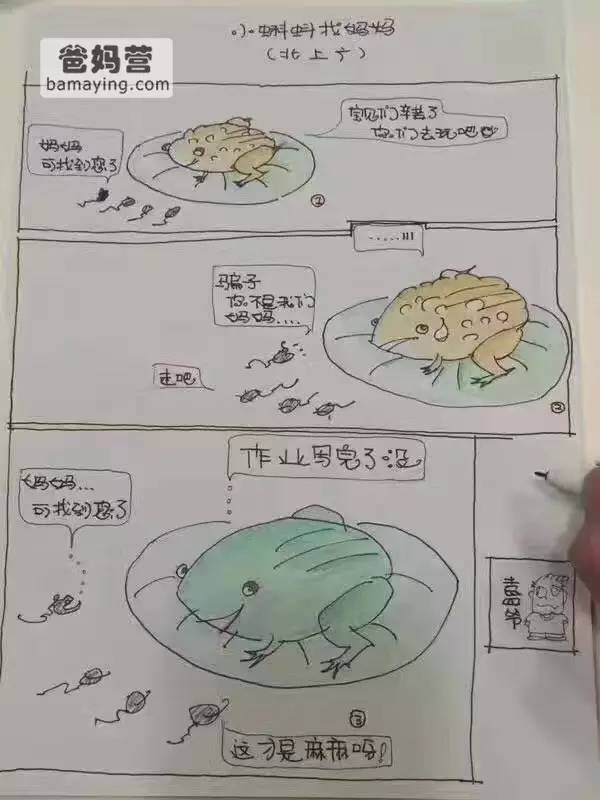 爸妈营
bamaying.com
小蝌蚪找妈妈
(北上广)
妈妈
可找到您了
宝贝们辛苦了
你们去玩吧
①
......!!!
骗子
你不是我们
妈妈....
走吧
②
作业写完了没
妈妈...
可找到您了
③
这才是麻麻呀!